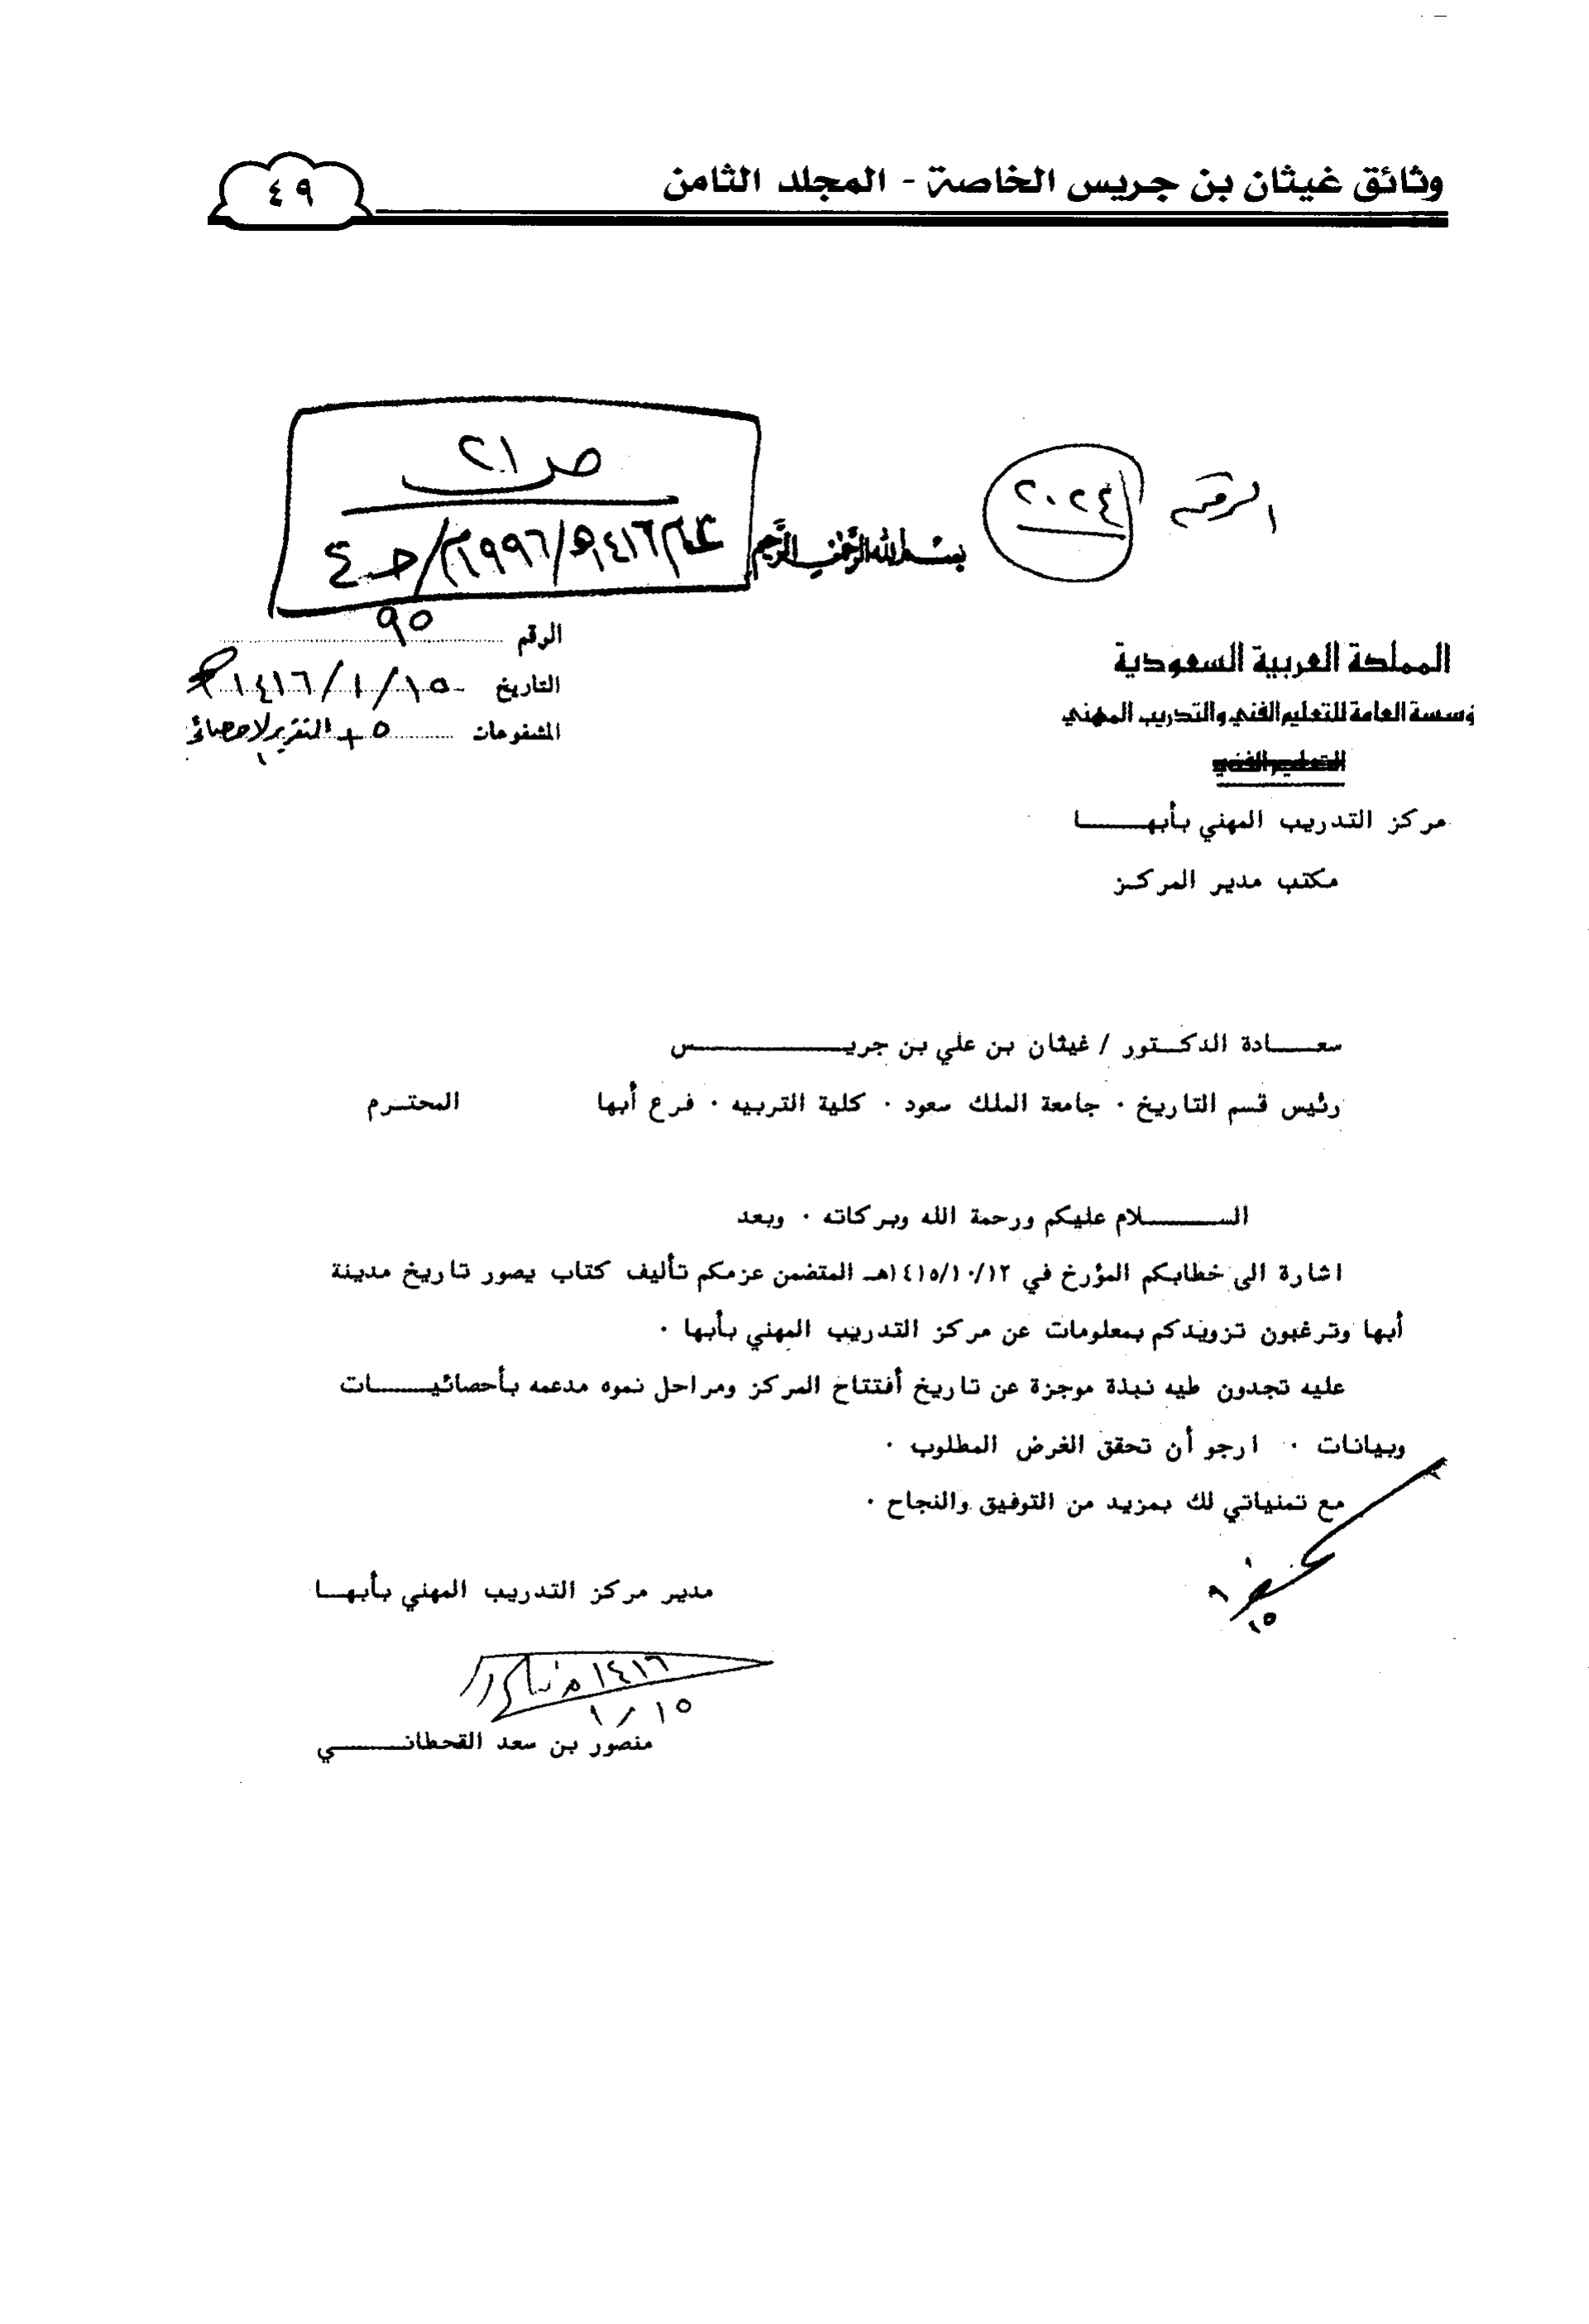 وثائق غيثان بن جريس الخاصة - المجلد الثامن
٤٩
الرقم ٢٠٢٤
ص ٢١
عام ١٤١٦هـ/١٩٩٦م/حـ ٤
بسم الله الرحمن الرحيم
المملكة العربية السعودية
ؤسسة العامة للتعليم الفني والتدريب المهني
التعليم الفني
مركز التدريب المهني بأبهـــــا
مكتب مدير المركـز
الرقم ٩٥
التاريخ ١٤١٦/١/١٥هـ
المشفوعات ٥ + التقرير الاحصائي
سعـــــادة الدكـــتور / غيثان بن علي بن جريـــــــــــس
رئيس قسم التاريخ ٠ جامعة الملك سعود ٠ كلية التربيه ٠ فرع أبها المحتــرم
الســـــــلام عليكم ورحمة الله وبركاته ٠ وبعد
اشارة الى خطابكم المؤرخ في ١٤١٥/١٠/١٢هـ المتضمن عزمكم تأليف كتاب يصور تاريخ مدينة
أبها وترغبون تزويدكم بمعلومات عن مركز التدريب المهني بأبها ٠
عليه تجدون طيه نبذة موجزة عن تاريخ أفتتاح المركز ومراحل نموه مدعمه بأحصائيــــــات
وبيانات ٠ ارجو أن تحقق الغرض المطلوب ٠
مع تمنياتي لك بمزيد من التوفيق والنجاح ٠
مدير مركز التدريب المهني بأبهـــا
١٤١٦
١/١٥
منصور بن سعد القحطانـــــــي